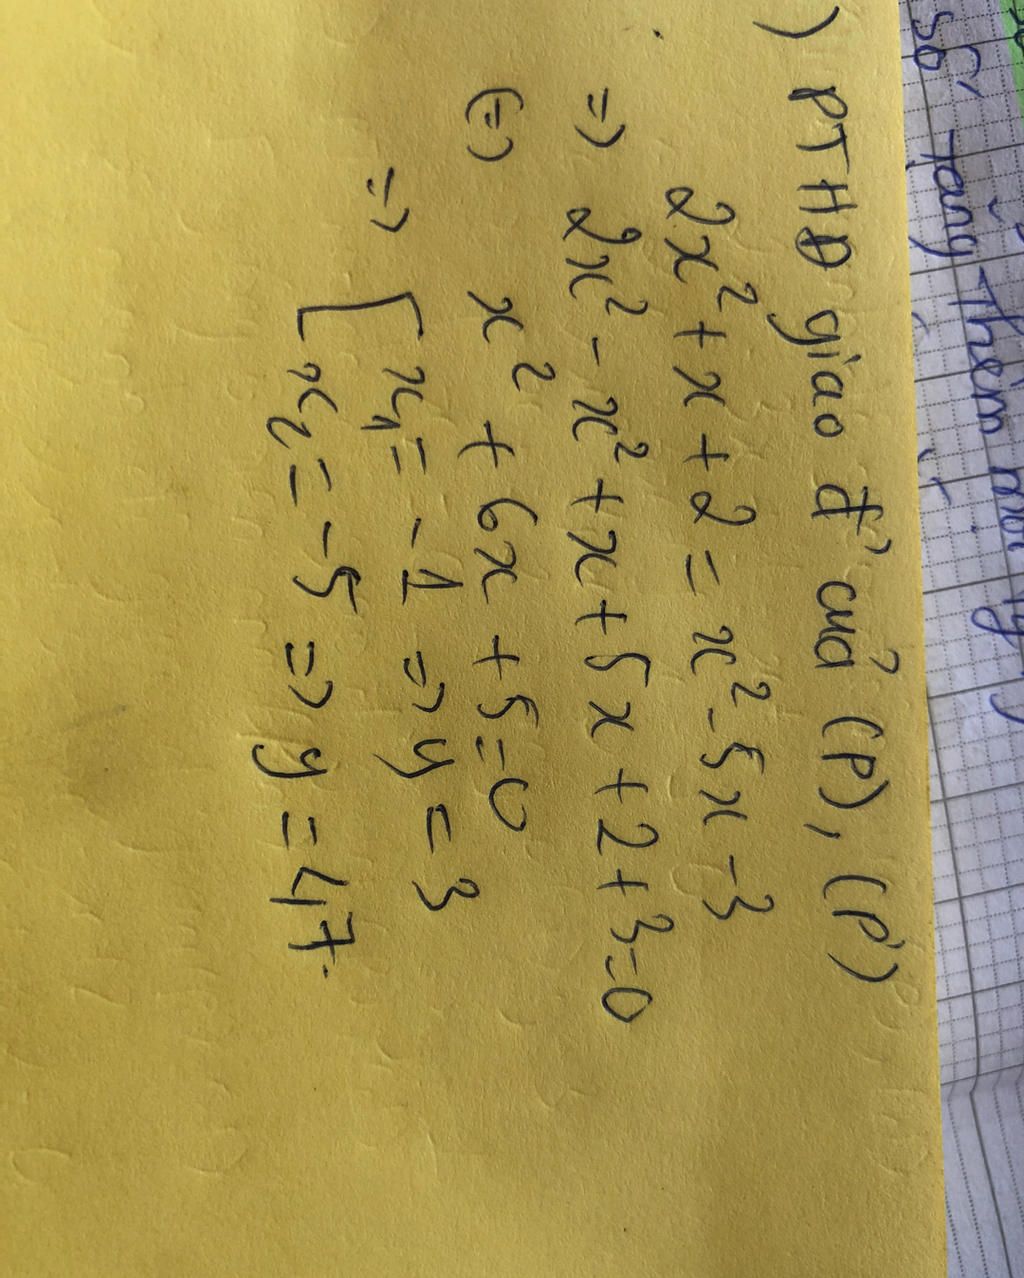 số tang thêm mỗi
) PTHĐ giao đ' của (P), (P')
2x² + x + 2 = x² - 5x - 3
=) 2x² - x² + x + 5x + 2 + 3 = 0
(=) x² + 6x + 5 = 0
=) [ x₁ = -1 =) y = 3
x₂ = -5 =) y = 47.